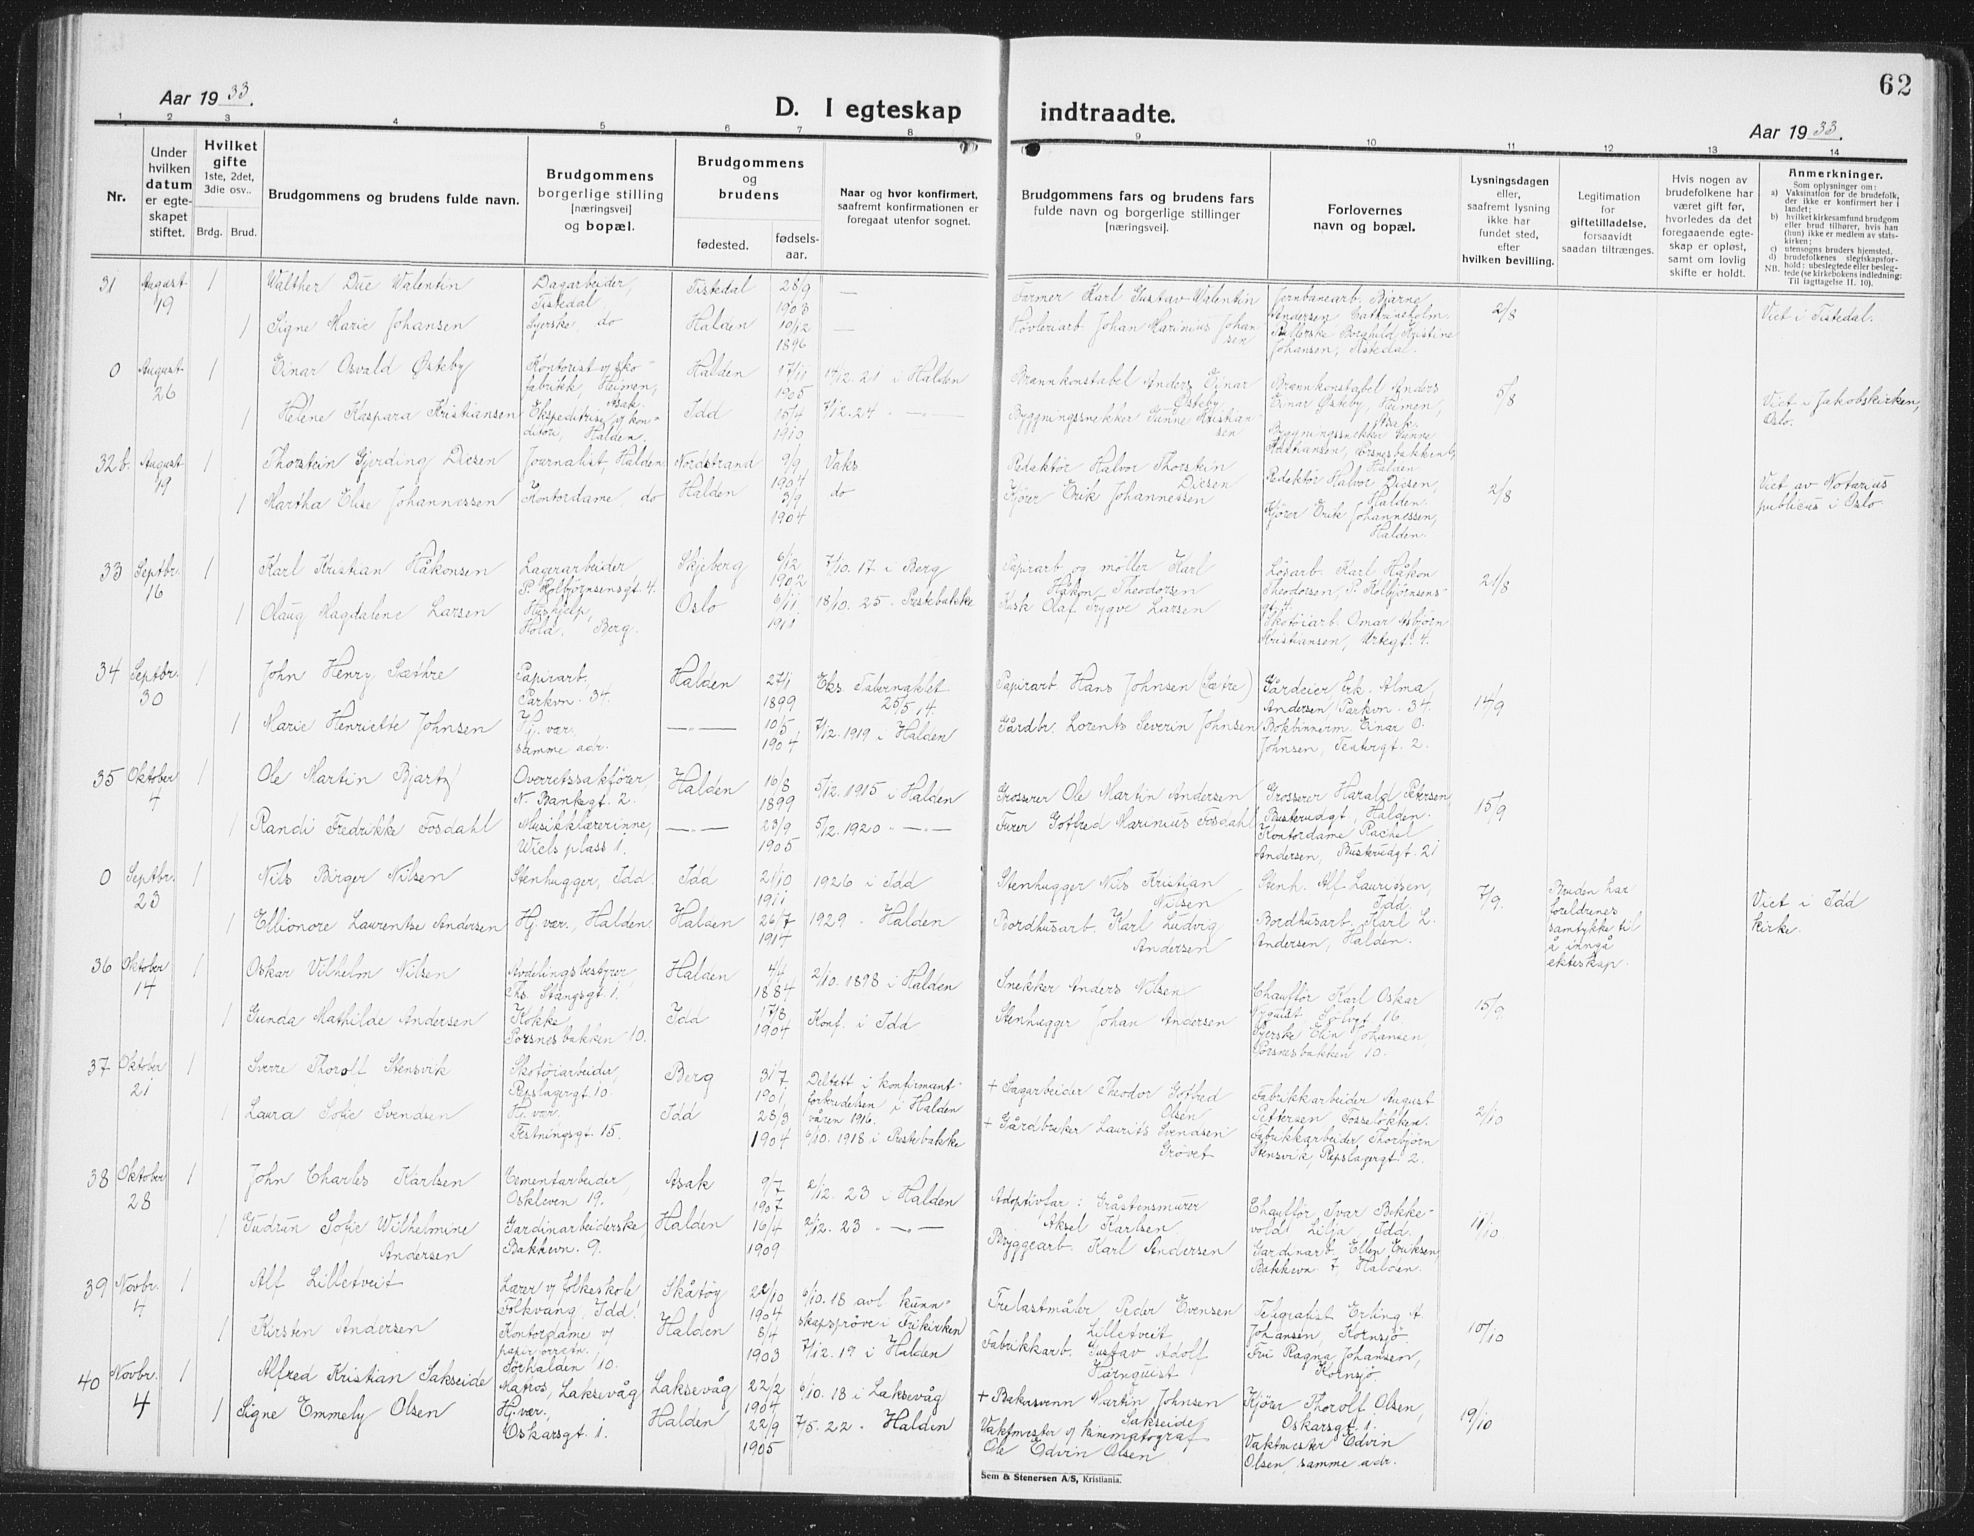 62
Aar 1933.
D. I egteskap indtraadte.
Aar 1933.
1 2 3 4 5 6 7 8 9 10 11 12 13 14
Nr.
Under hvilken datum er egteskapet stiftet.
Hvilket gifte 1ste, 2det, 3die osv..
Brdg. Brud.
Brudgommens og brudens fulde navn.
Brudgommens borgerlige stilling [næringsvei] og bopæl.
Brudgommens og brudens
fødested. fødselsaar.
Naar og hvor konfirmert, saafremt konfirmationen er foregaat utenfor sognet.
Brudgommens fars og brudens fars fulde navn og borgerlige stillinger [næringsvei].
Forlovernes navn og bopæl.
Lysningsdagen eller, saafremt lysning ikke har fundet sted, efter hvilken bevilling.
Legitimation for giftetilladelse, forsaavidt saadan tiltrænges.
Hvis nogen av brudefolkene har været gift før, hvorledes da det foregaaende egteskap er opløst, samt om lovlig skifte er holdt.
Anmerkninger.
Som oplysninger om:
a) Vaksination for de brudefolk, der ikke er konfirmert her i landet;
b) hvilket kirkesamfund brudgom eller brud tilhører, hvis han (hun) ikke er medlem av statskirken;
c) utensogns bruders hjemsted,
d) brudefolkenes slegtskapsforhold: ubeslegtede eller beslegtede (se kirkebokens indledning: Til iagttagelse II. 10).
NB.
31 August 19 1 Walther Due Valentin Dagarbeider, Tistedal Tistedal 28/9 1903 — Farmer Karl Gustav Valentin Jernbanearb. Bjarne Andersen 2/8 Viet i Tistedal.
1 Signe Marie Johansen Syerske do Halden 10/12 1896 — Høvleriarb. Johan Marinius Johansen Borghild Kristine Johansen, Tistedal.
0 August 26 1 Einar Osvald Østeby Kontorist v/ skofabrikk, Heimen, Asak. Halden 17/11 1905 14/12.21 i Halden Brannkonstabel Anders Einar Østeby Brannkonstabel Anders Einar Østeby, Heimen, Asak. 5/8 Viet i Jakobskirken, Oslo.
1 Helene Kaspara Kristiansen Ekspeditrise v/ konditori, Halden. Idd 15/4 1910 7/12.24 —"— Byggningssnekker Gunne Kristiansen Bygningssnekker Gunne Kristiansen, Halden
32 b. August 19 1 Thorstein Gjerding Diesen Journalist, Halden Nordstrand 9/9 1904 Vaks Redaktør Halvor Thorstein Diesen Redaktør Halvor Diesen, Halden. 2/8 Viet av Notarius publicus i Oslo.
1 Martha Elise Johannessen Kontordame, do Halden 3/9 1904 do Kjører Erik Johannessen Kjører Erik Johannessen, Halden.
33 Septbr. 16 1 Karl Kristian Håkonsen Lagerarbeider P. Kolbjørnsensgt. 4. Skjeberg 6/12 1902 7/10.17 i Berg Papirarb og møller Karl Håkon Theodorsen Løsarb. Karl Håkon Theodorsen, P. Kolbjørnsensgt. 4. 21/8
1 Olaug Magdalene Larsen Hushjelp, Hola, Berg. Oslo 6/11 1911 18/10.25 - Prestebakke Kusk Olaf Trygve Larsen Skotøiarb. Omar Asbjørn Kristiansen, Urtegt. 4.
34 Septbr. 30 1 John Henry Sæthre Papirarb. Parkvn. 34. Halden 27/1 1899 Eks. Tabernaklet 25/5 14 Papirarb. Hans Johnsen (Sætre) Gårdeier frk. Alma Andersen, Parkvn. 34. 14/9
1 Marie Henriette Johnsen Hj. vær. samme adr. —"— 10/5 1904 7/12.1919 i Halden Gårdbr. Lorents Severin Johnsen Bokbinnerm. Einar O. Johnsen, Teatergt. 2.
35 Oktober 4 1 Ole Martin Bjartz Overretssakfører, N. Banksgt. 2. Halden 16/8 1899 5/12.1915 i Halden Grosserer Ole Martin Andersen Grosserer Harald Petersen, Busterudgt., Halden. 15/9
1 Randi Fredrikke Fosdahl Musikklærerinne, Wiels plass 1. —"— 23/9 1905 5/12.1920 —"— Furer Gotfred Marinius Fosdahl Kontordame Rachel Andersen, Busterudgt. 21
0 Septbr. 23 1 Nils Birger Nilsen Stenhugger, Idd. Idd 21/10 1911 1926 i Idd Stenhugger Nils Kristian Nilsen Stenh. Alf Lauridsen, Idd. 7/9. Bruden har foreldrenes samtykke til å inngå ekteskap. Viet i Idd kirke.
1 Ellionore Laurentse Andersen Hj. vær., Halden. Halden 26/7 1914 1929 - Halden Bordhusarb. Karl Ludvig Andersen Bordhusarb. Karl L. Andersen, Halden.
36 Oktober 14 1 Oskar Vilhelm Nilsen Avdelingsbestyrer, Chs. Stangsgt. 1. Halden 4/4 1884 2/10.1898 i Halden Snekker Anders Nilsen Chauffør Karl Oskar 15/9
1 Gunda Mathilde Andersen Kokke Porsnesbakken 10. Idd 17/8 1904 Konf. i Idd Stenhugger Johan Andersen Syerske Elin Johansen, Porsnesbakken 10.
37 Oktober 21 1 Sverre Thorolf Stensvik Skotøiarbeider, Repslagergt. 10. Berg 31/7 1901 Deltatt i konfirmantforberedelsen i Halden våren 1916. + Sagarbeider Theodor Gotfred Olsen Fabrikkarbeider August Pettersen Fosseløkken. 2/10
1 Laura Sofie Svendsen Hj. vær. Festningsgt. 15. Idd 28/3 1904 6/10.1918 i Prestebakke + Gårdbruker Laurits Svendsen Grøvet Fabrikkarbeider Thorbjørn Stensvik, Repslagergt. 2.
38 Oktober 28 1 John Charles Karlsen Cementarbeider, Oskleven 19. Asak 9/7 1907 2/12.23 i Halden Adoptivfar: Gråstensmurer Aksel Karlsen Chauffør Ivar Bekkevold, Lilja, Idd. 11/10
1 Gudrun Sofie Wilhelmine Andersen Gardinarbeiderske, Bakkevn. 9. Halden 16/4 1909 2/12.23 —"— Bryggearb. Karl Andersen Gardinarb. Ellen Eriksen, Bakkevn. 7, Halden.
39 Novbr. 4 1 Alf Lilletveit Lærer v/ folkeskole Folkvang, Idd. Skåtøy 22/10 1904 6/10.18 avl. kunnskapsprøve i Frikirken Trelastmåler Peder Evensen Lilletveit Telegrafist Erling A. Johansen, Kornsjø. 10/10
1 Kirsten Andersen Kontordame v/ papirforretn. Sørhalden 10. Halden 8/4 1903 7/12.19 i Halden Fabrikkarb. Gustav Adolf Härnquist Fru Ragna Johansen, Kornsjø
40 Novbr. 4 1 Alfred Kristian Sakseide Matros, Laksevåg Laksevåg 22/2 1904 6/10.18 i Laksevåg + Bakersvenn Martin Johnsen Sakseide Kjører Thorolf Olsen, Oskarsgt. 1. 19/10
1 Signe Emmely Olsen Hj. vær., Oskarsgt. 1. Halden 22/9 1905 7/5.22 - Halden Vaktmester v/ kinematograf Ole Edvin Olsen Vaktmester Edvin Olsen, samme adr.
Sem & Stenersen A/S, Kristiania.